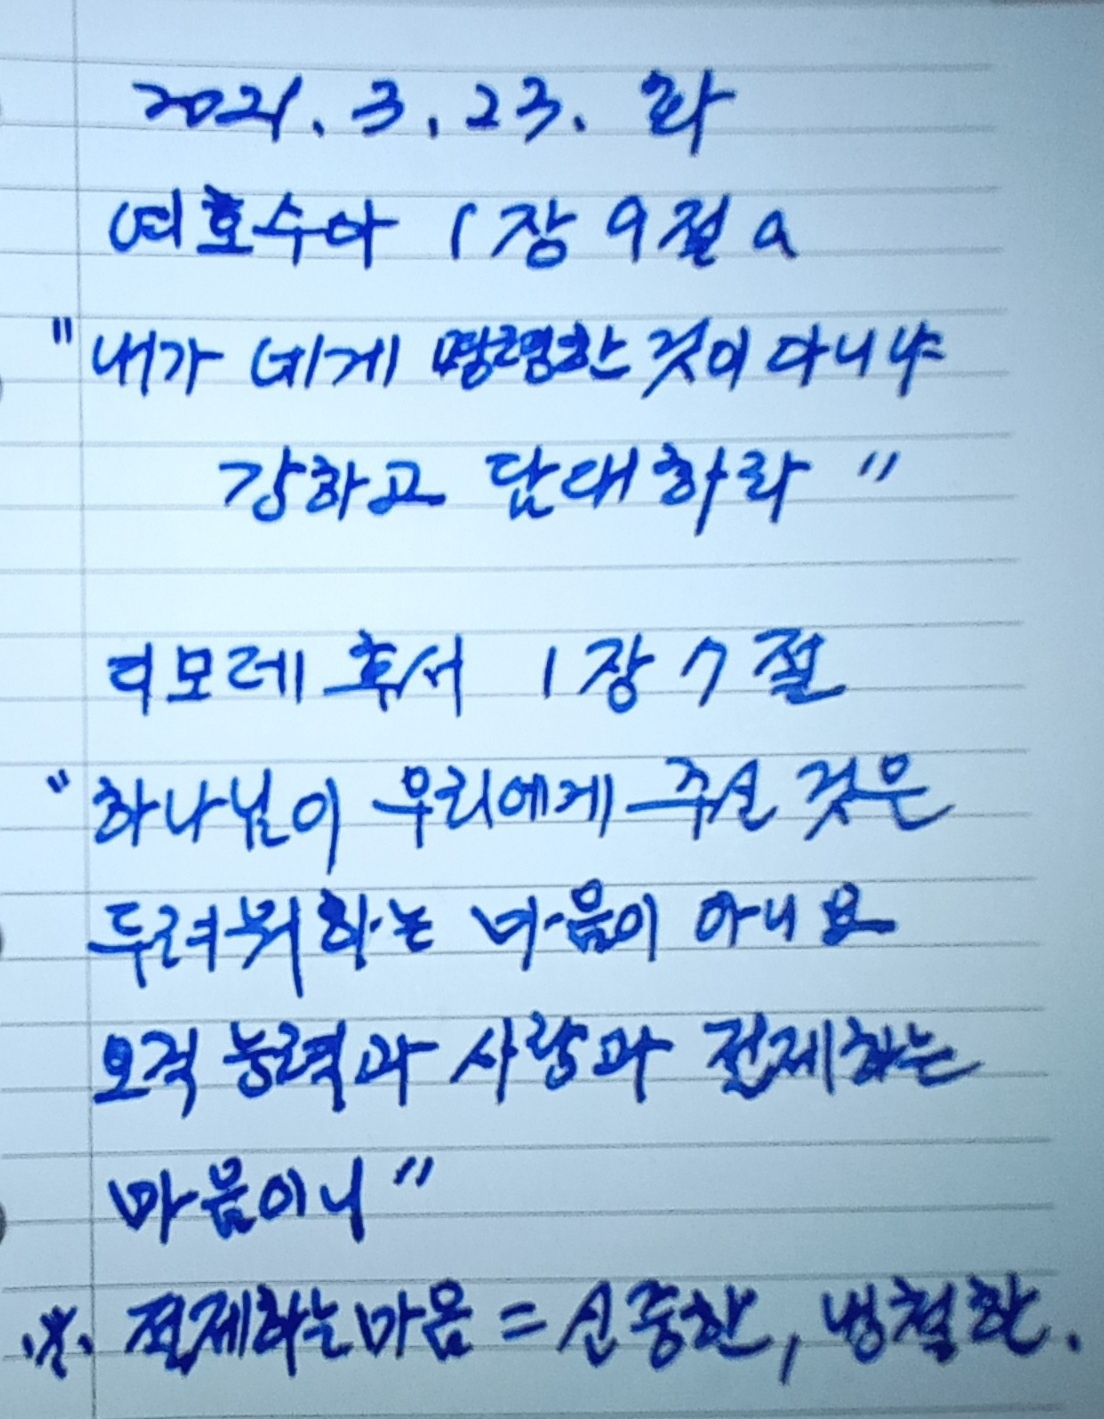 2021. 3. 23. 화
여호수아 1장 9절 a
"내가 네게 명령한 것이 아니냐
강하고 담대하라"
디모데 후서 1장 7절
"하나님이 우리에게 주신 것은
두려워하는 마음이 아니요
오직 능력과 사랑과 절제하는
마음이니"
※ 절제하는 마음 = 신중한, 냉철한.